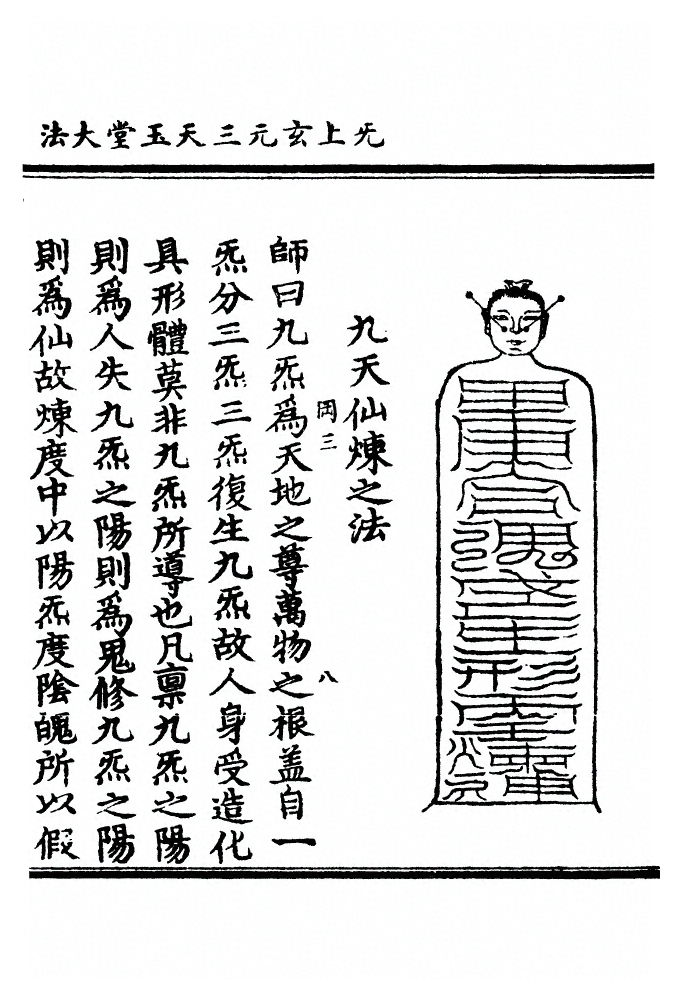 旡上玄元三天玉堂大法
九天仙煉之法
岡三 八
師曰九炁爲天地之尊萬物之根盖自一
炁分三炁三炁復生九炁故人身受造化
具形體莫非九炁所導也凡禀九炁之陽
則爲人失九炁之陽則爲鬼修九炁之陽
則爲仙故煉度中以陽炁度陰魄所以假